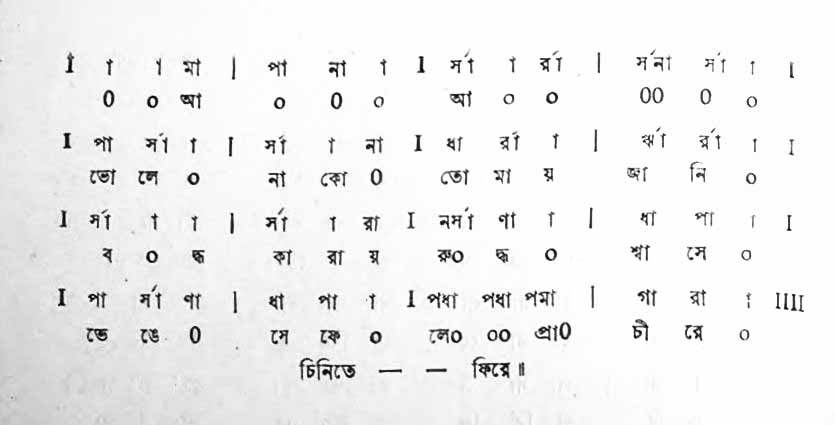 I া া মা | পা না া I র্সা া র্রা | র্সনা র্সা া I
0 ০ আ ০ 0 ০ আ ০ ০ 00 0 ০
I পা র্সা া | র্সা া না I ধা র্রা া | র্ঋা র্রা া I
ভো লে ০ না কো 0 তো মা য় জা নি ০
I র্সা া া | র্সা া রা I নর্সা ণা া | ধা পা া I
ব ০ দ্ধ কা রা য় রু০ দ্ধ ০ শ্বা সে ০
I পা র্সা ণা | ধা পা া I পধা পধা পমা | গা রা া IIII
ভে ঙে 0 সে ফে ০ লে০ ০০ প্রা0 চী রে ০
চিনিতে — — ফিরে॥